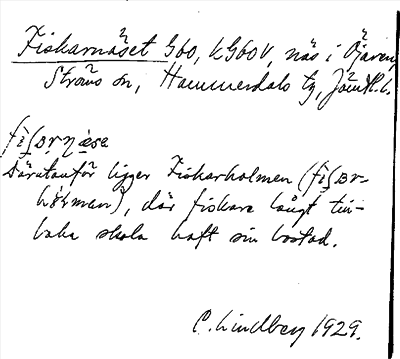 Fiskarnäset G60, kG60V, näs i Öjaren,
Ströms sn, Hammerdals tg, Jämtl. l.
fìʃᴀrnæse
Därutanför ligger Fiskarholmen (fìʃᴀr-
hòḷman), där fiskare långt till-
baka skola haft sin bostad.
C. Lindberg 1929.